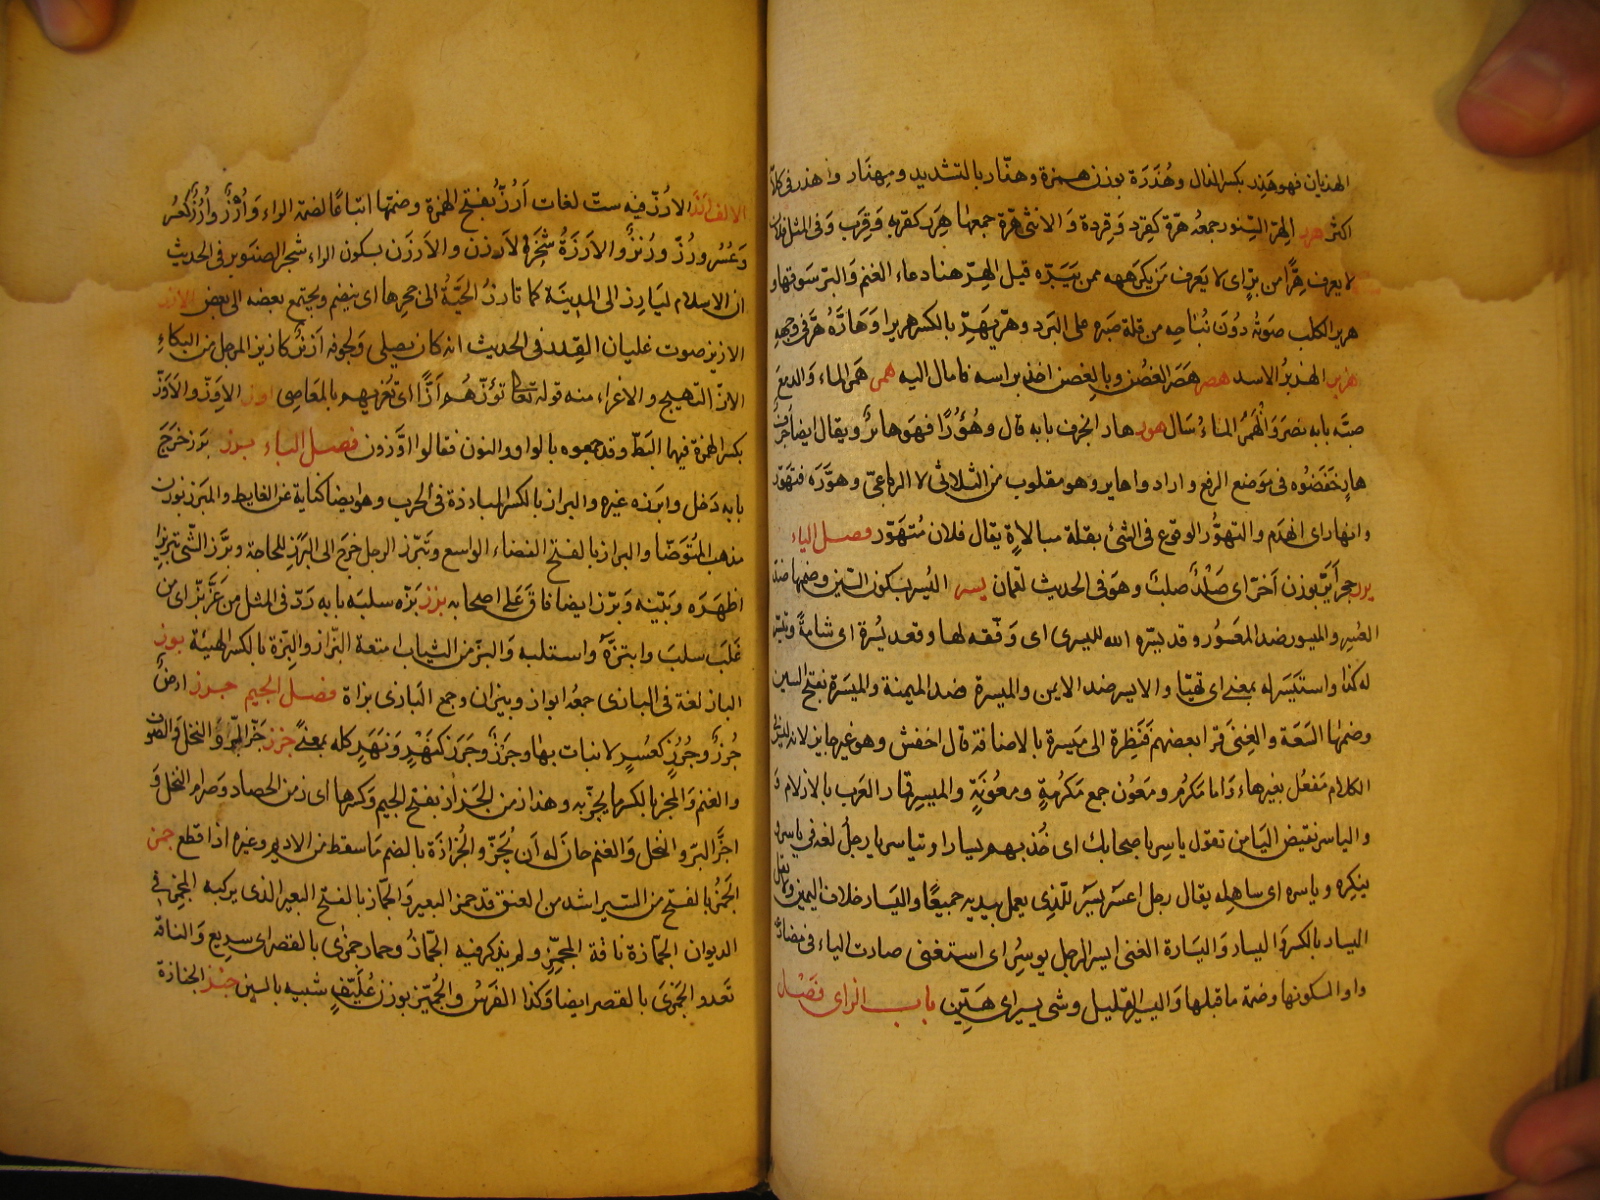 الهذيان فهو هَذِر بكسر الذال وهُذَرَة بوزن همزة وهذّار بالتشديد ومِهذَار واهذر فى كلا
اكثر هرر الهرّ السِّنور جمعه هِرَرة كقِرد وَقِردة وَالانثى هِرّة جمعها هِرَر كقربه وَقِرَب وَفى المثل فلان
لا يعرف هِرًّا من برٍّ اى لا يَعرف مَن يَكرَهه ممن يَبَرّه قيل الهِرّ هنا دعاء الغنم وَالبرّ سَوقها و
هرير الكلب صَوتُه دُونَ نُبَاحِه من قلة صَبره على البَرد وهرّ يهِرّ بالكسر هريرا وَهَارَّهُ هَرَّ فى وجهِهِ
هزبر الهزبرُ الاسد هصر هَصَرَ الغُصْنَ وبالغصن اخذ براسه فاماله اليه همر هَمَر الماء وَالدمعَ
صبَّه بابه نصَرَ وَانْهَمَرَ المَاءُ سَال هور هار الجرف بابه قال وَهُؤُرًا فهو هَائر ويقال ايضا جُرُفٌ
هارٍ خَفَضُوه فى مَوضع الرفع وارادوا هاير وهو مقلوب من الثلاثى لا الرباعىّ وهوَّرَه فتهوّر
وانهار اى انهدَم والتهوُّر الوقوع فى الشئ بقلة مبالاةٍ يقال فلان مُتهَوّر فصل الياء
يرر حجر أَيَرّ بوزن أَحَرّ اى صَلْدٌ صلبٌ وهوَ فى الحديث لقمان يسر اليُسر بسكون السّين وضمها ضد
العُسرِ والميسور ضد المعسُور وقد يسّره الله لليسرى اى وَفّقه لها وقعد يُسْرة اى شامةً وتيسّر
له كذا واستَيْسَر له بمعنے اى تهيّا والايسر ضد الايمن والميسرة ضد الميمنة والميسَرة بفتح السين
وضمها السَّعَة والغِنى قرا بعضهم فَنَظِرة الى مَيسرة بالاضافة قال اخفش وهو غير جايز لانه ليس فى
الكلام مَفعُل بغير هاء وَاما مَكرُم ومَعُون جمع مَكرُمةٍ ومعُونَةٍ والميسِر قمار العَرب بالازلام وَ
والياسر نقيض اليَامن تقول ياسِر باصحابك اى خُذ بهم يسارا وتياسر يا رجلُ لغة فى ياسر و
ينكِره وياسره اى ساهله يقال رجل اعسَر يَسَر للّذى يعمل بيديه جميعًا واليَسار خلاف اليمين ولا تقل
اليسار بالكسر وَاليسار وَاليَسارة الغنى ايسر الرجل يوسِرُ اى استغنى صارت الياء فى مضارعه
واوا لسكونها وضمة ما قبلها وَاليسير القليل وشى يسير اى هَيّن باب الزاى فَصْل
الالف ارز الارُزّ فيه ستّ لغات اَرُزّ بفتح الهمزة وضمها اتباعًا لضمة الراء وَاُرْزٌ واُرُزٌ كعُسْر
وَعُسُر ورُزّ ورُنْزٌ والاَرَزَةُ شَجَرة الارزن والاَرزَن بسكون الراء شجر الصنوبر فى الحديث
ان الاسلام ليَارِز الى المدِينَة كما تارزُ الحيَّة الى جحرها اى ينضم ويجتمع بعضه الى بعض الازز
الازيز صوت غليان القِدر فى الحديث انه كان يصلى وَلجوفه اَزيز كازيز المرجل من البكاءِ
الازّ التهييج والاغراء منه قوله تعالى تؤزّهم اَزًّا اى تغريهم بالمعَاصِى اوز الاِوَزّ والاِوَزّ
بكسر الهمزة فيهما البَطّ وقد جمعوه بالواو والنون فقالوا اوَّزون فصل الباء برز بَرَز خرَجَ
بابه دَخل وابرَزه غيره والبراز بالكسر المبارزة فى الحرب وهو ايضا كناية عن الغايط والمَبرَز بوزن
مذهب المُتوَضّا والبراز بالفتح الفضاء الواسع وتَبَرّز الرجل خرجَ الى البَرَاز للحاجة وبَرَّز الشّى تبريزًا
اظهَرَه وبَيّنه وَبَرّز ايضا فاقَ عَلى اصحابه بزز بَزّه سلبَه بابه ردّ فى المثل من عَزَّ بَزّ اى من
غَلبَ سلبَ وابتزَّهُ واستلبه وَالبزّ من الثياب امتعة البَزّاز والبِزّة بالكسر الهيئة بوز
الباز لغة فى البازى جمعُه ابواز وبيزان وجمع البازى بزاة فصل الجيم جرز ارضٌ
جُرُزٌ وجُرْزٌ كعُسُرٍ لا نبات بها وجَرَزٌ وجَرْز كنَهْرٍ وَنَهَرٍ كله بمعنے جزز جَزّ البُرّ وَ النخل وَالصّوف
والغنم وَالمِجَز بالكسر ما يُجَزّ به وهذا زمن الجَزاز بفتح الجيم وَكسرها اى زمن الحصاد وَصَرام النخل وَ
اجزّ البُرّ والنخل وَالغنم حان له اَن يُجَزّ والجُزازة بالضم مَا سقط من الاديم وغيره اذا قطع جمز
الجَمْز بالفتح من السّير اشد من العنق قد جمز البعير وَالجمّاز بالفتح البعير الذى يركبه المجمّز فى
الديوان الجمّازة ناقة المجمِّزِ ولم يذكر فيه الجمّازُ وحمار جمزى بالقصر اى سريع وَالناقة
تعدو الجَمَزىَ بالقصر ايضا وَكذا الفرسُ والجُمَّيز بوزن عُلَّيقٍ شبيه بالتين جنز الجنازة